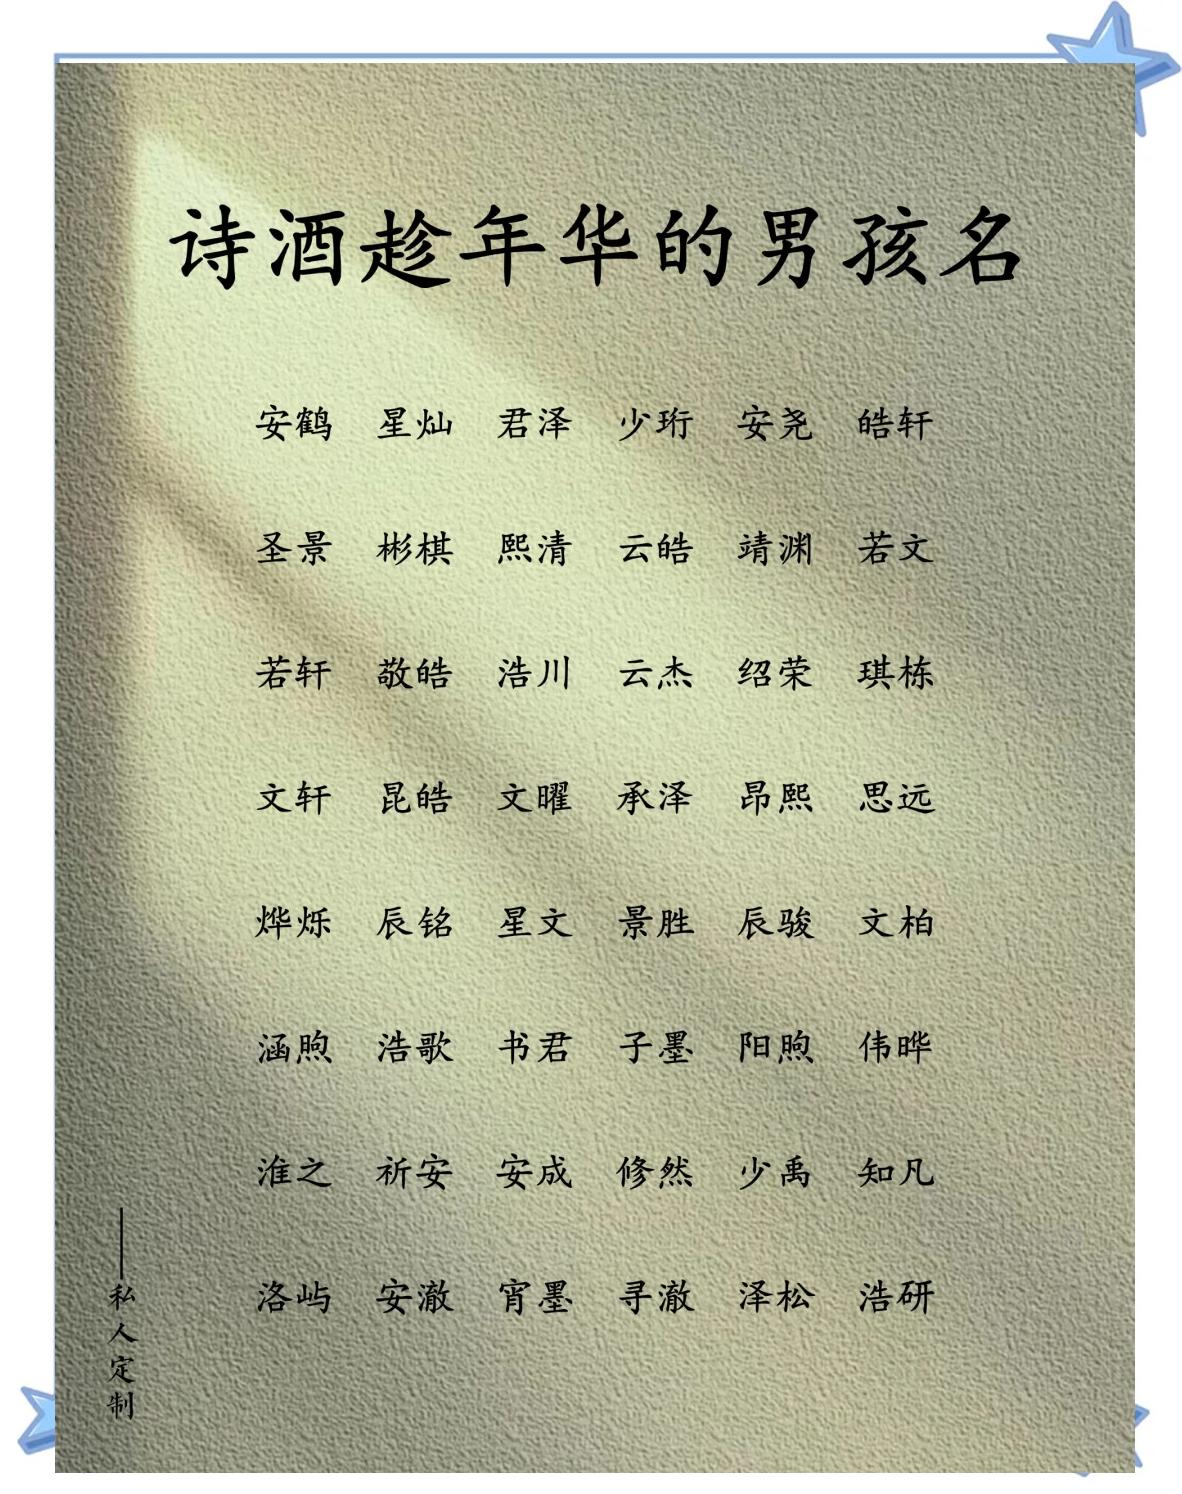 诗酒趁年华的男孩名
安鹤 星灿 君泽 少珩 安尧 皓轩
圣景 彬棋 熙清 云皓 靖渊 若文
若轩 敬皓 浩川 云杰 绍荣 琪栋
文轩 昆皓 文曜 承泽 昂熙 思远
烨烁 辰铭 星文 景胜 辰骏 文柏
涵煦 浩歌 书君 子墨 阳煦 伟晔
淮之 祈安 安成 修然 少禹 知凡
洛屿 安澈 宵墨 寻澈 泽松 浩研
——私人定制